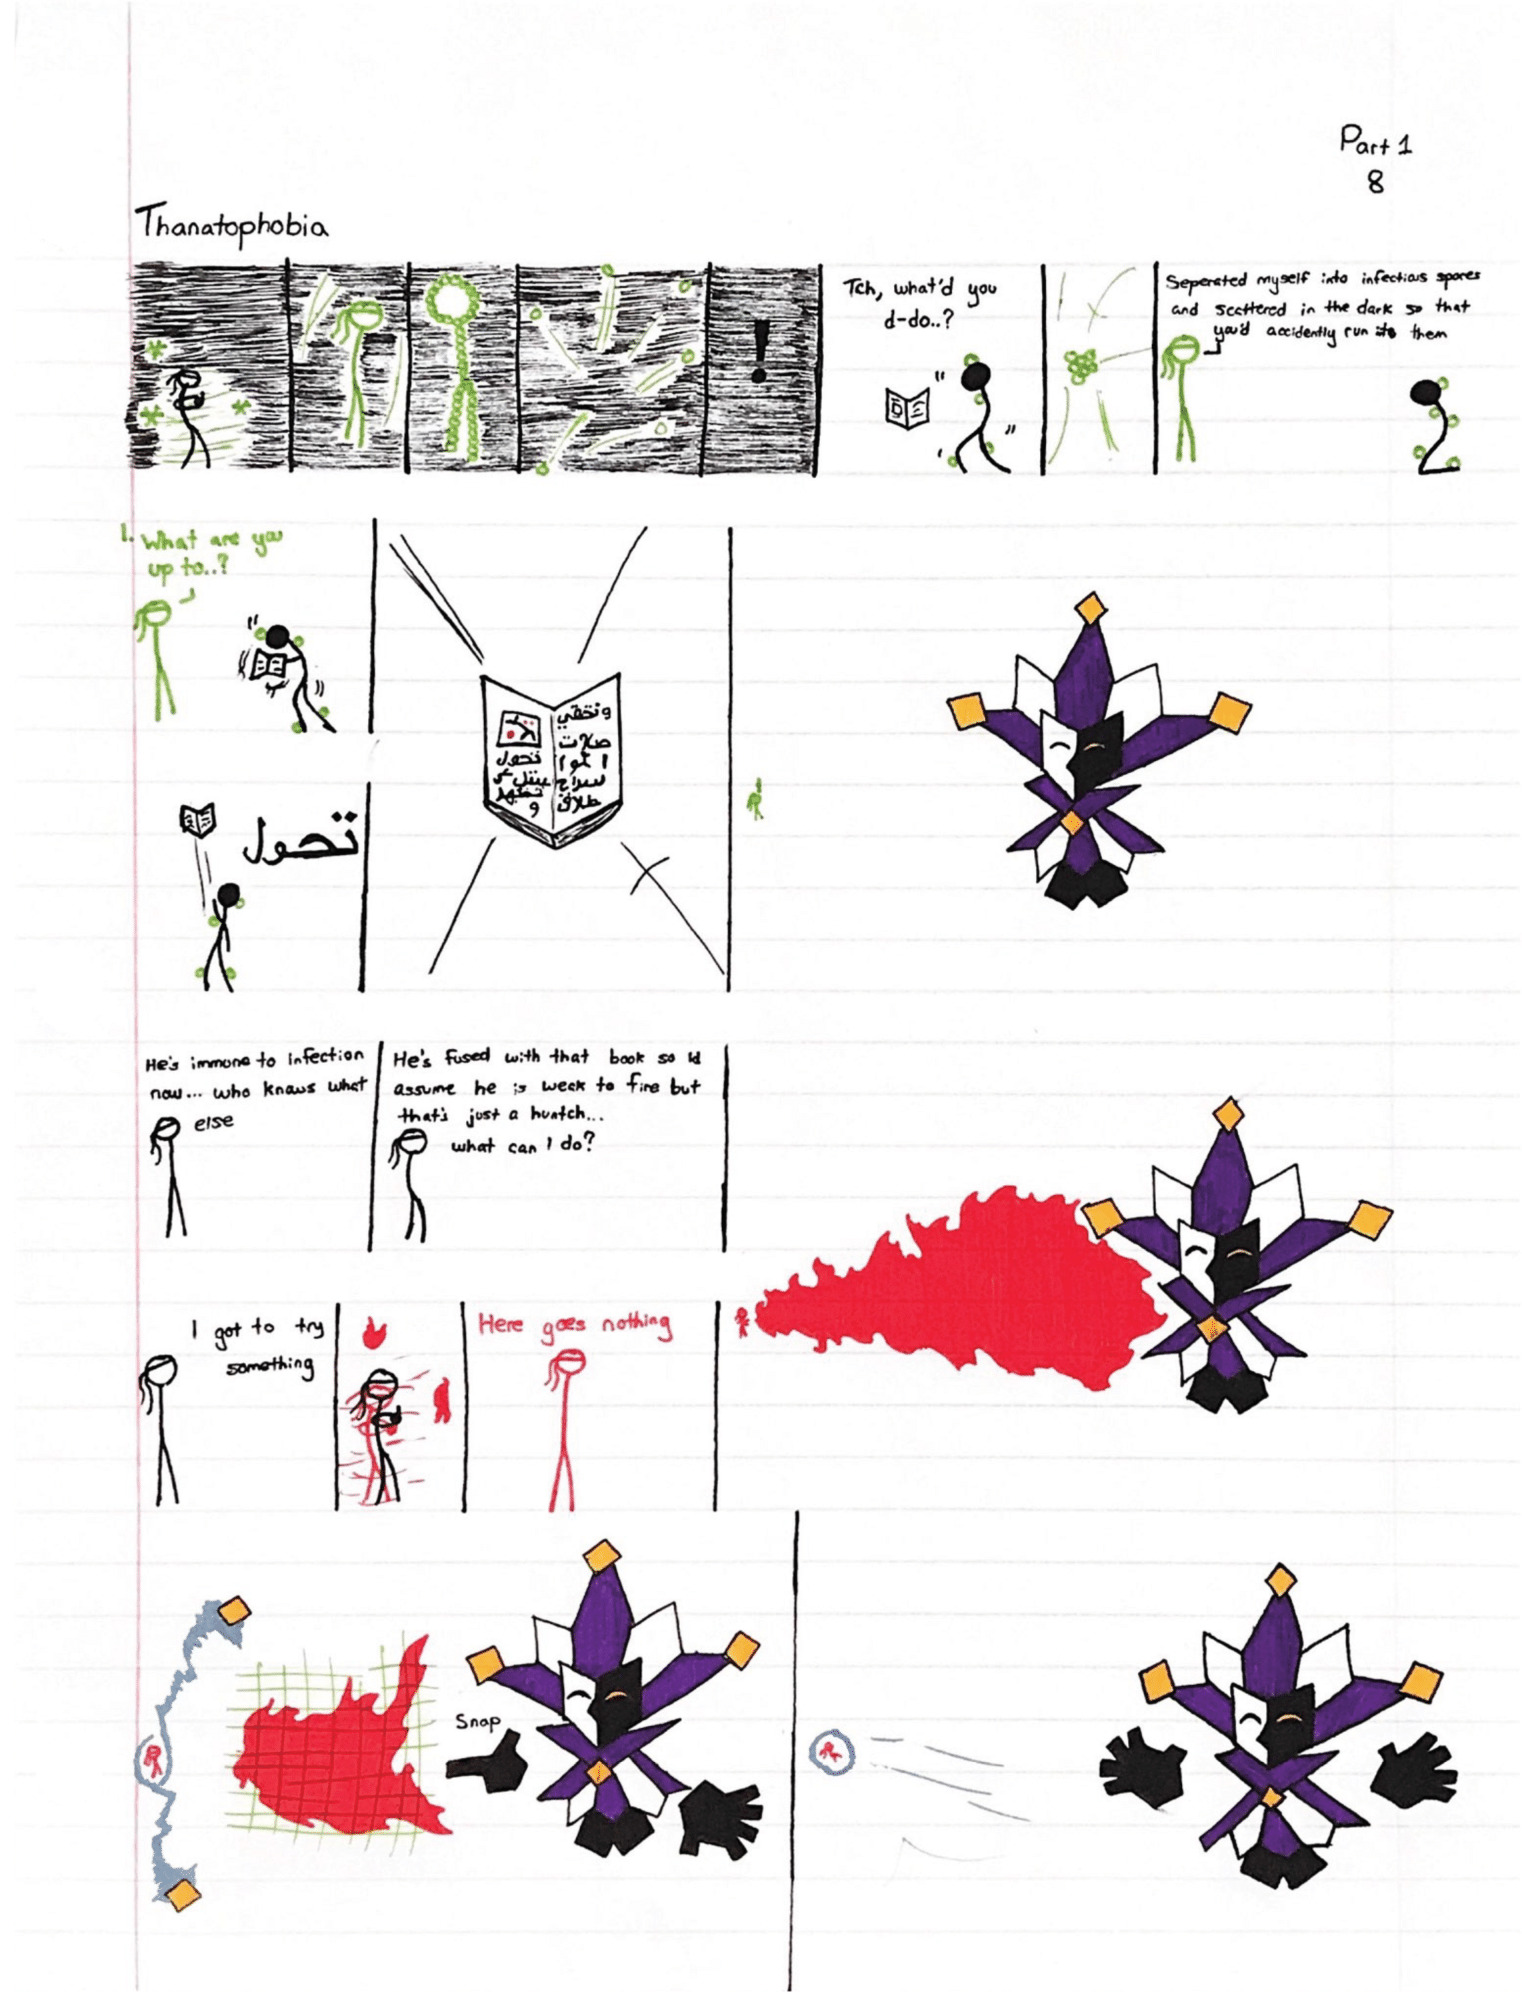 Part 1
8
Thanatophobia
!
Tch, what'd you
d-do..?
Seperated myself into infectious spores
and scattered in the dark so that
you'd accidently run into them
1. What are you
up to..?
تحول
He's immune to infection
now... who knows what
else
He's fused with that book so Id
assume he is weak to fire but
that's just a huntch...
what can I do?
I got to try
something
Here goes nothing
Snap